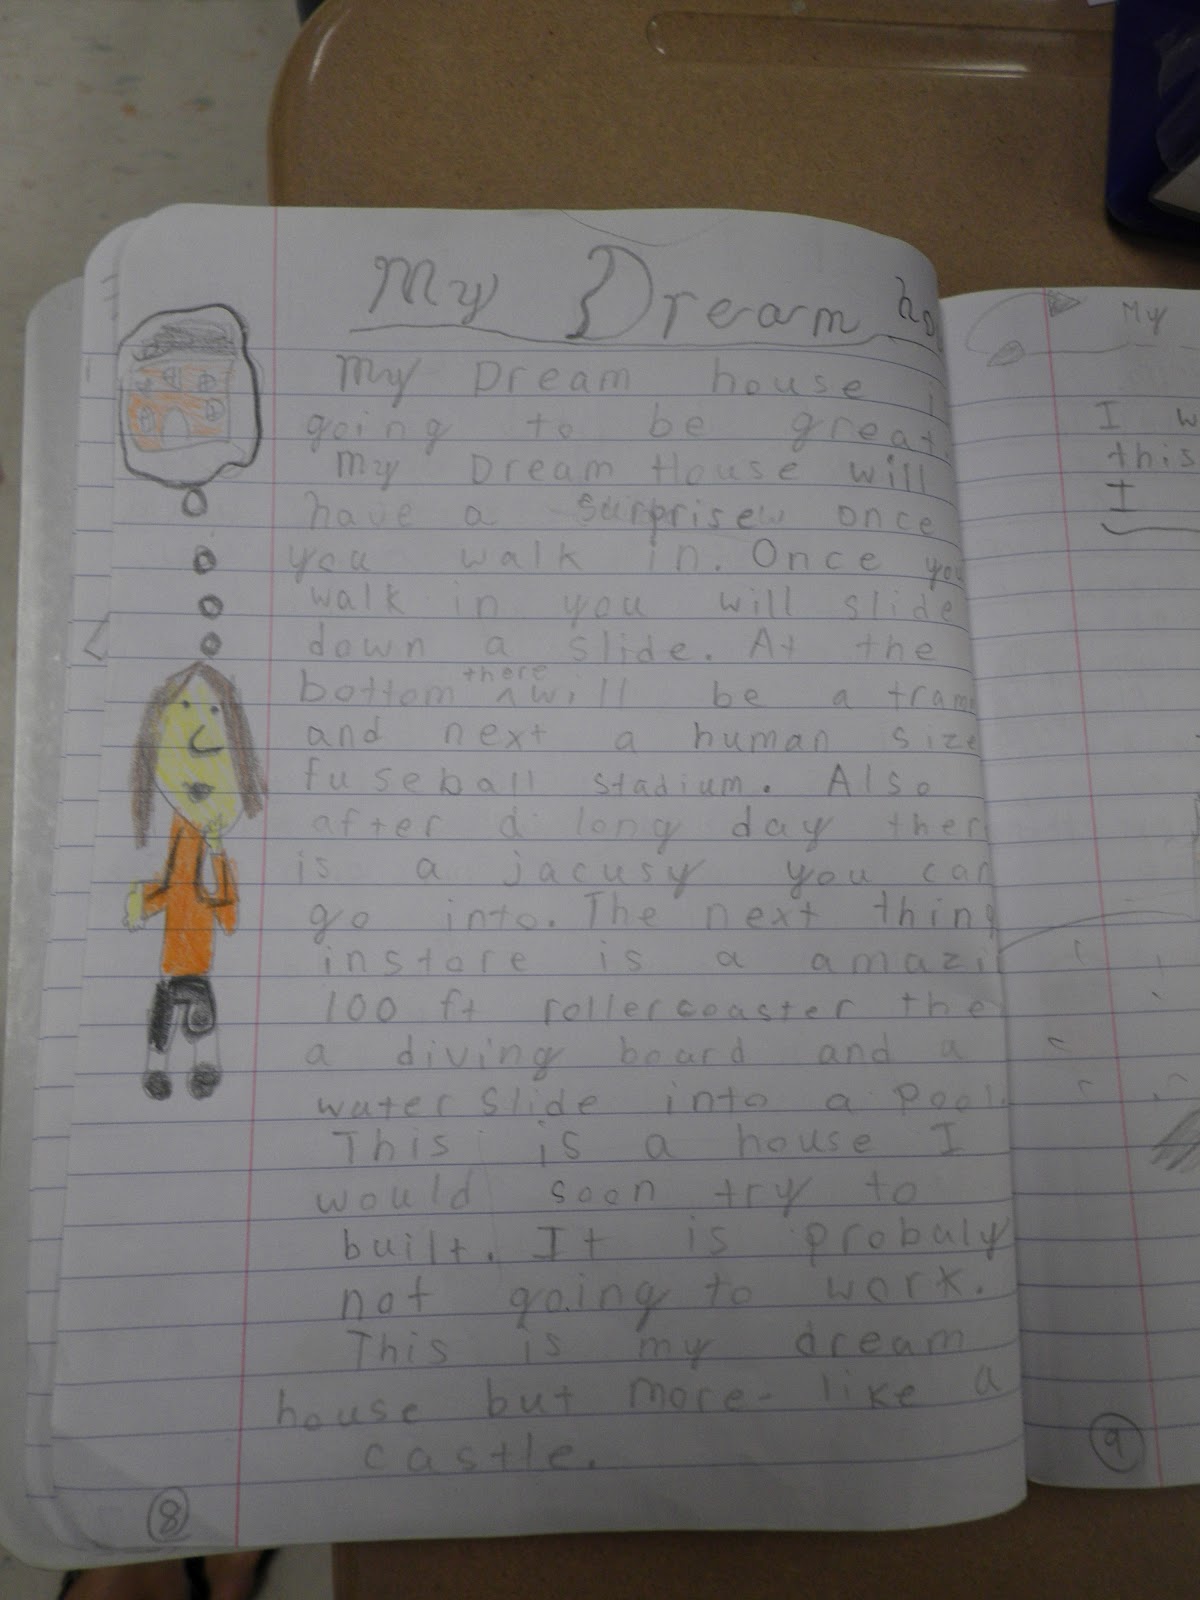 My Dream ho
My Dream house i
going to be great.
My Dream House will
have a surprise once
you walk in. Once you
walk in you will slide
down a slide. At the
bottom there will be a tram
and next a human size
fuseball stadium. Also
after a long day ther
is a jacusy you can
go into. The next thing
instore is a amazi
100 ft rollercoaster the
a diving board and a
water slide into a pool.
This is a house I
would soon try to
built. It is probaly
not going to work.
This is my dream
house but more like a
castle.
8
My
I w
this
I
9